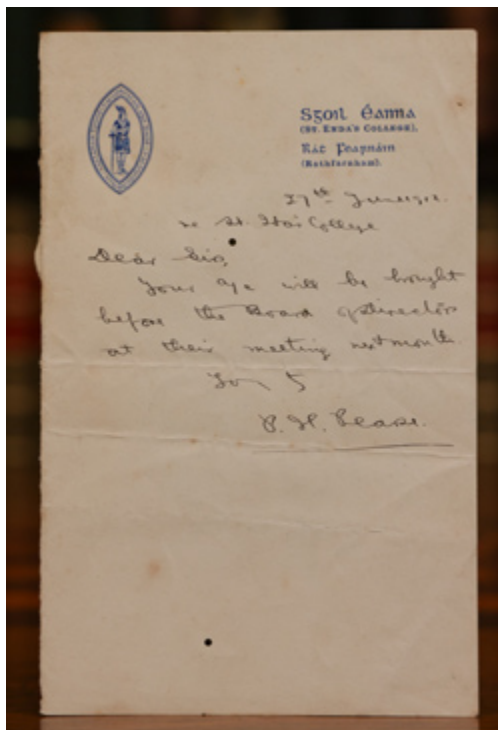 Sgoil Éanna
(ST. ENDA'S COLLEGE),
Rát Fearnáin
(Rathfarnham).
27th June 1912.
re St. Ita's College
Dear Sir,
Your a/c will be brought
before the Board of Directors
at their meeting next month.
P. H. Pearse.